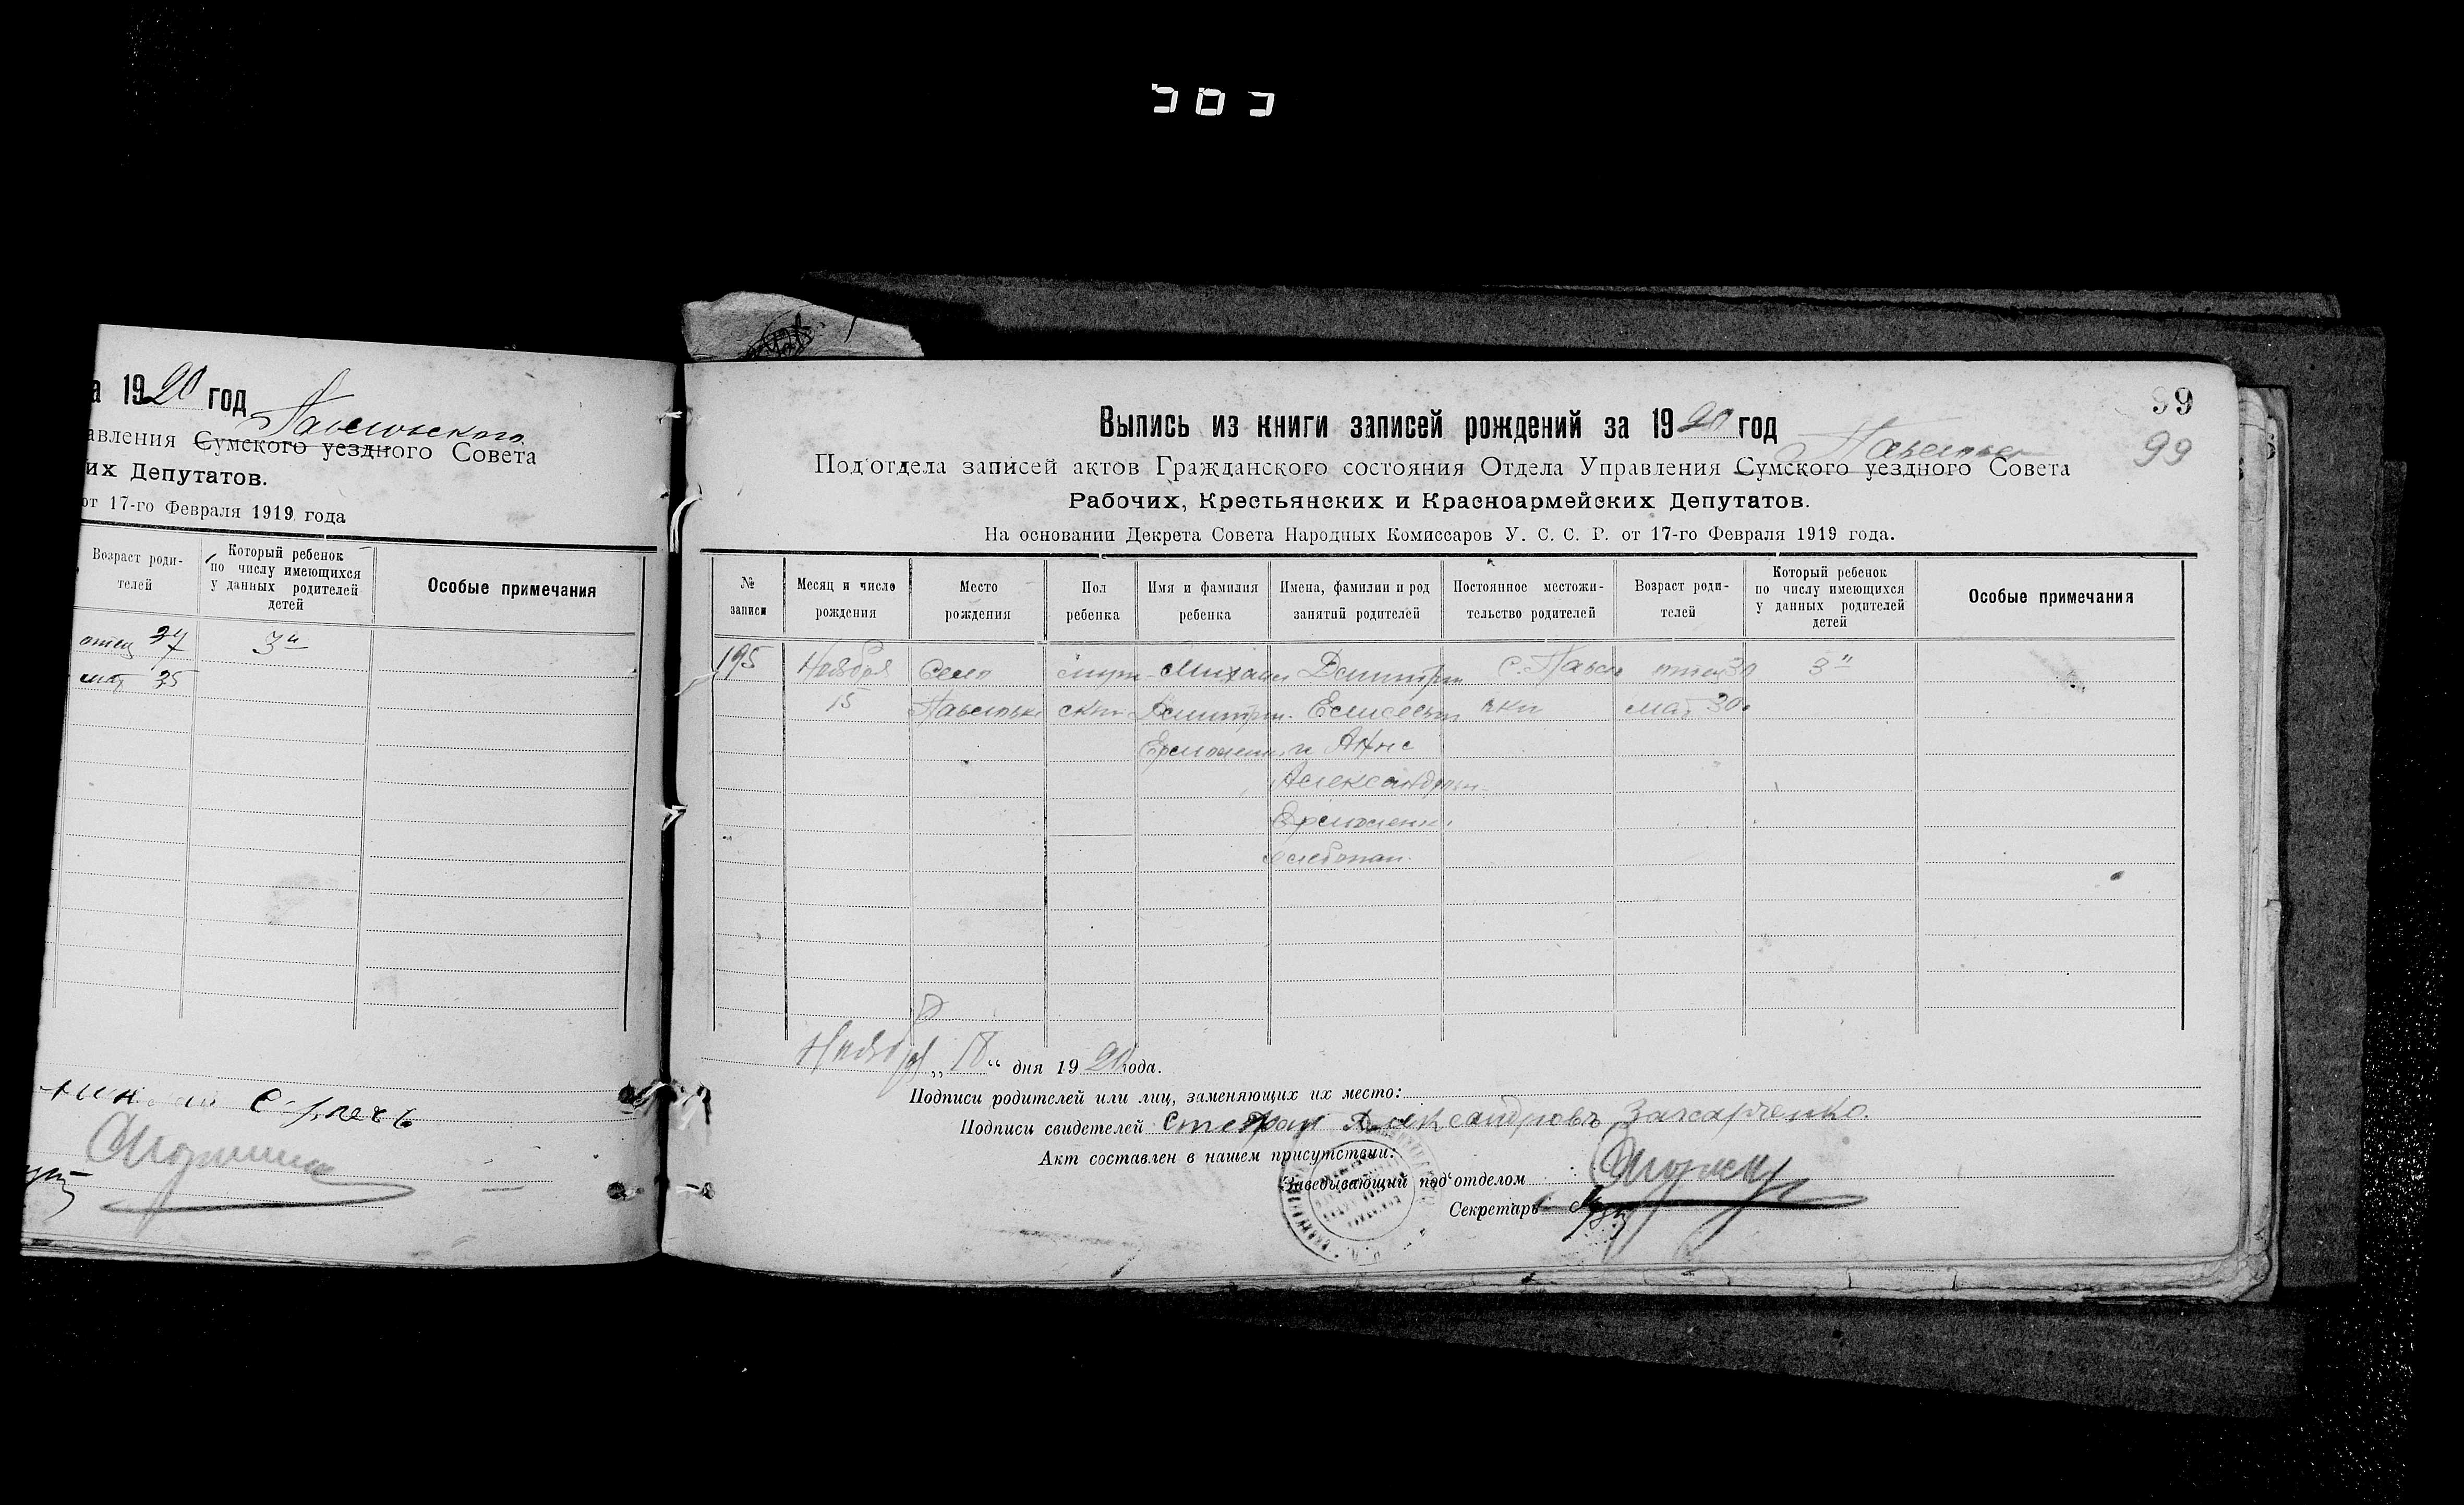 а 1920 год
Павловского
авления Сумского уездного Совета
их Депутатов.
от 17-го Февраля 1919 года
Возраст роди-
телей
Который ребенок
по числу имеющихся
у данных родителей
детей
Особые примечания
отец 37
3й
мат 35
99
Выпись из книги записей рождений за 1920 год
99
Под'отдела записей актов Гражданского состояния Отдела Управления Сумского уездного Совета
Рабочих, Крестьянских и Красноармейских Депутатов.
На основании Декрета Совета Народных Комиссаров У. С. С. Р. от 17-го Февраля 1919 года.
№
записи
Месяц и число
рождения
Место
рождения
Пол
ребенка
Имя и фамилия
ребенка
Имена, фамилии и род
занятий родителей
Постоянное местожи-
тельство родителей
Возраст роди-
телей
Который ребенок
по числу имеющихся
у данных родителей
детей
Особые примечания
195 Ноября Село муж Михаил Дмитрии С. Павло отец 30 3й
15 Павловки ски Дмитри Елисееви вки мат 30
Ермоленк и Анне
Александров
Ермоленк
хлебопаш
Ноября „18“ дня 1920 года.
Подписи родителей или лиц, заменяющих их место:
Подписи свидетелей Стефан Александровъ Захарченко.
Акт составлен в нашем присутствии:
Заведывающий под'отделом
Секретарь